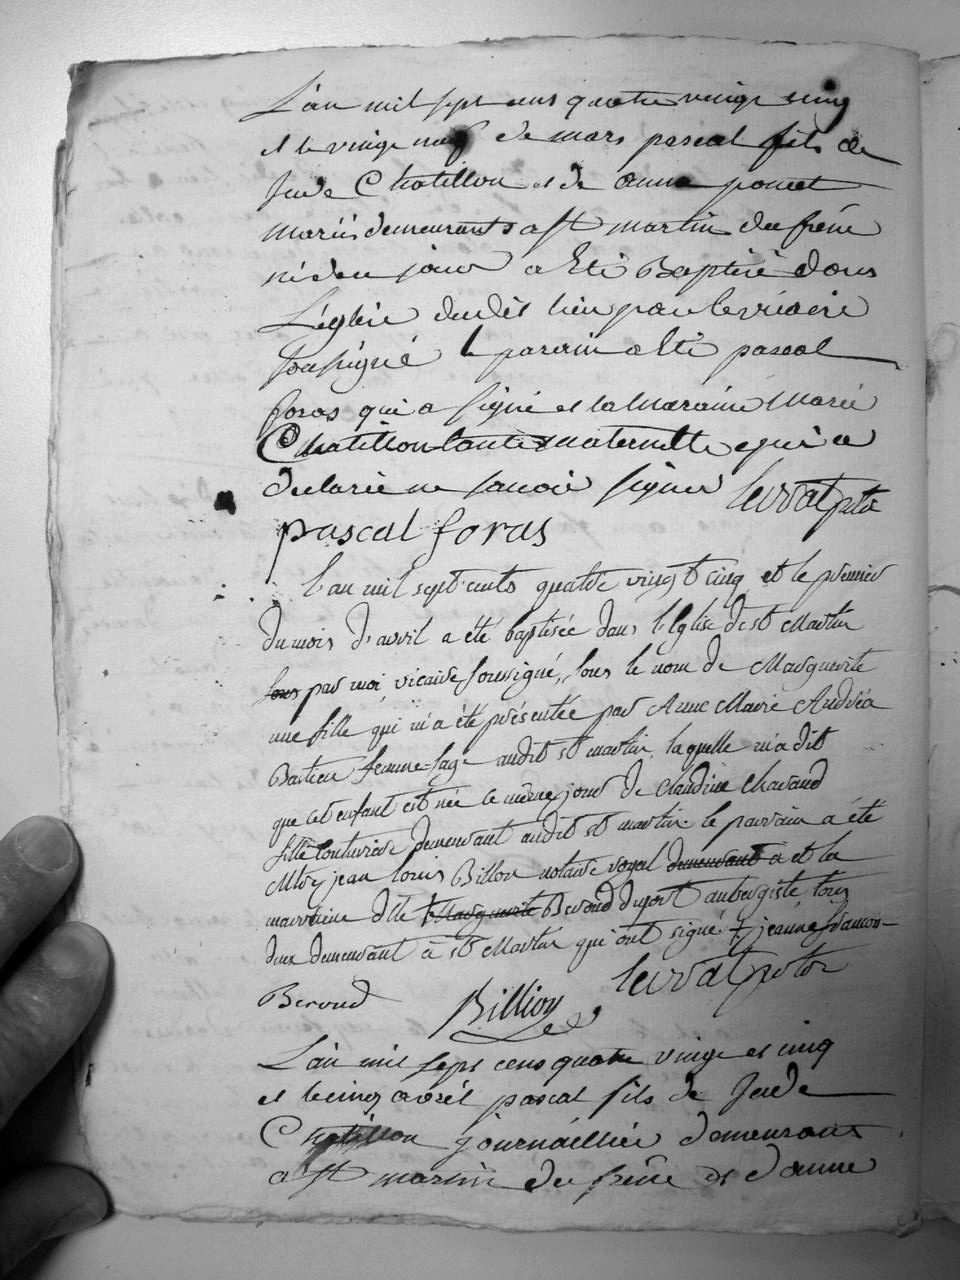 L'an mil sept cens quatre vingt cinq
et le vingt neuf de mars pascal fils de
Jude Chatillon et de anne ponset
mariés demeurants a st martin du frêne
né du jour a Eté Baptisé dans
L'eglise dudit lieu par le vicaire
soussigné le parain a Eté pascal
foras qui a signé et la Maraine Marie
Chatillon tante maternelle qui a
declarée ne savoir signer
pascal foras
l'an mil sept cents quatre vingt cinq et le premier
du mois d'avril a été baptisée dans l'Eglise de st Martin
sous par moi vicaire soussigné, sous le nom de Marguerite
une fille qui m'a été présentée par Anne Marie Andréa
femme-sage audit st martin laquelle m'a dit
que cet enfant est née le même jour de Claudine Chavand
fille couturière demeurant audit st martin le parrain a été
jean louis Billion notaire royal demeurant a et la
marraine dlle Marguerite Beroud aubergiste tous
deux demeurant à st Martin qui ont signé jeanne francon-
Beroud Billioy
L'an mil sept cens quatre vingt et cinq
et le cinq avril pascal fils de Jude
Chatillon journaillier demeurant
a st martin du frêne et d'anne